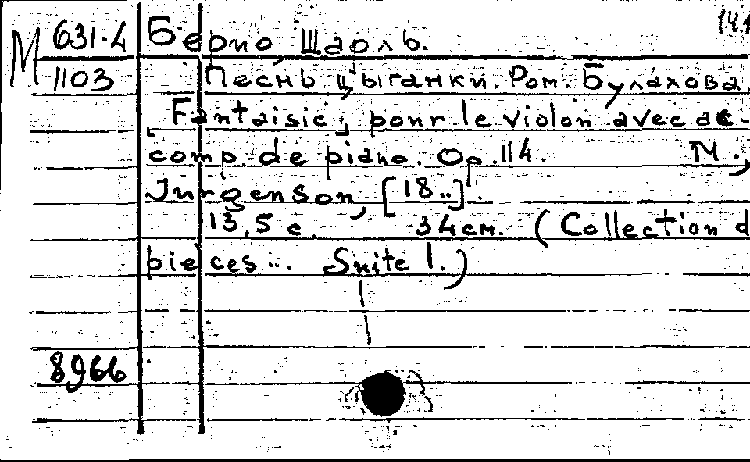 М 631-4 Берио, Шарль. 141
1103 Песнь цыганки. Ром. Булахова.
Fantaisie, pour le violon avec ac-
comp. de piano. Op. 114. М.,
Jurgenson, [18..].
13,5 с. 34 см. (Collection d
pieces... Suite 1.)
8966